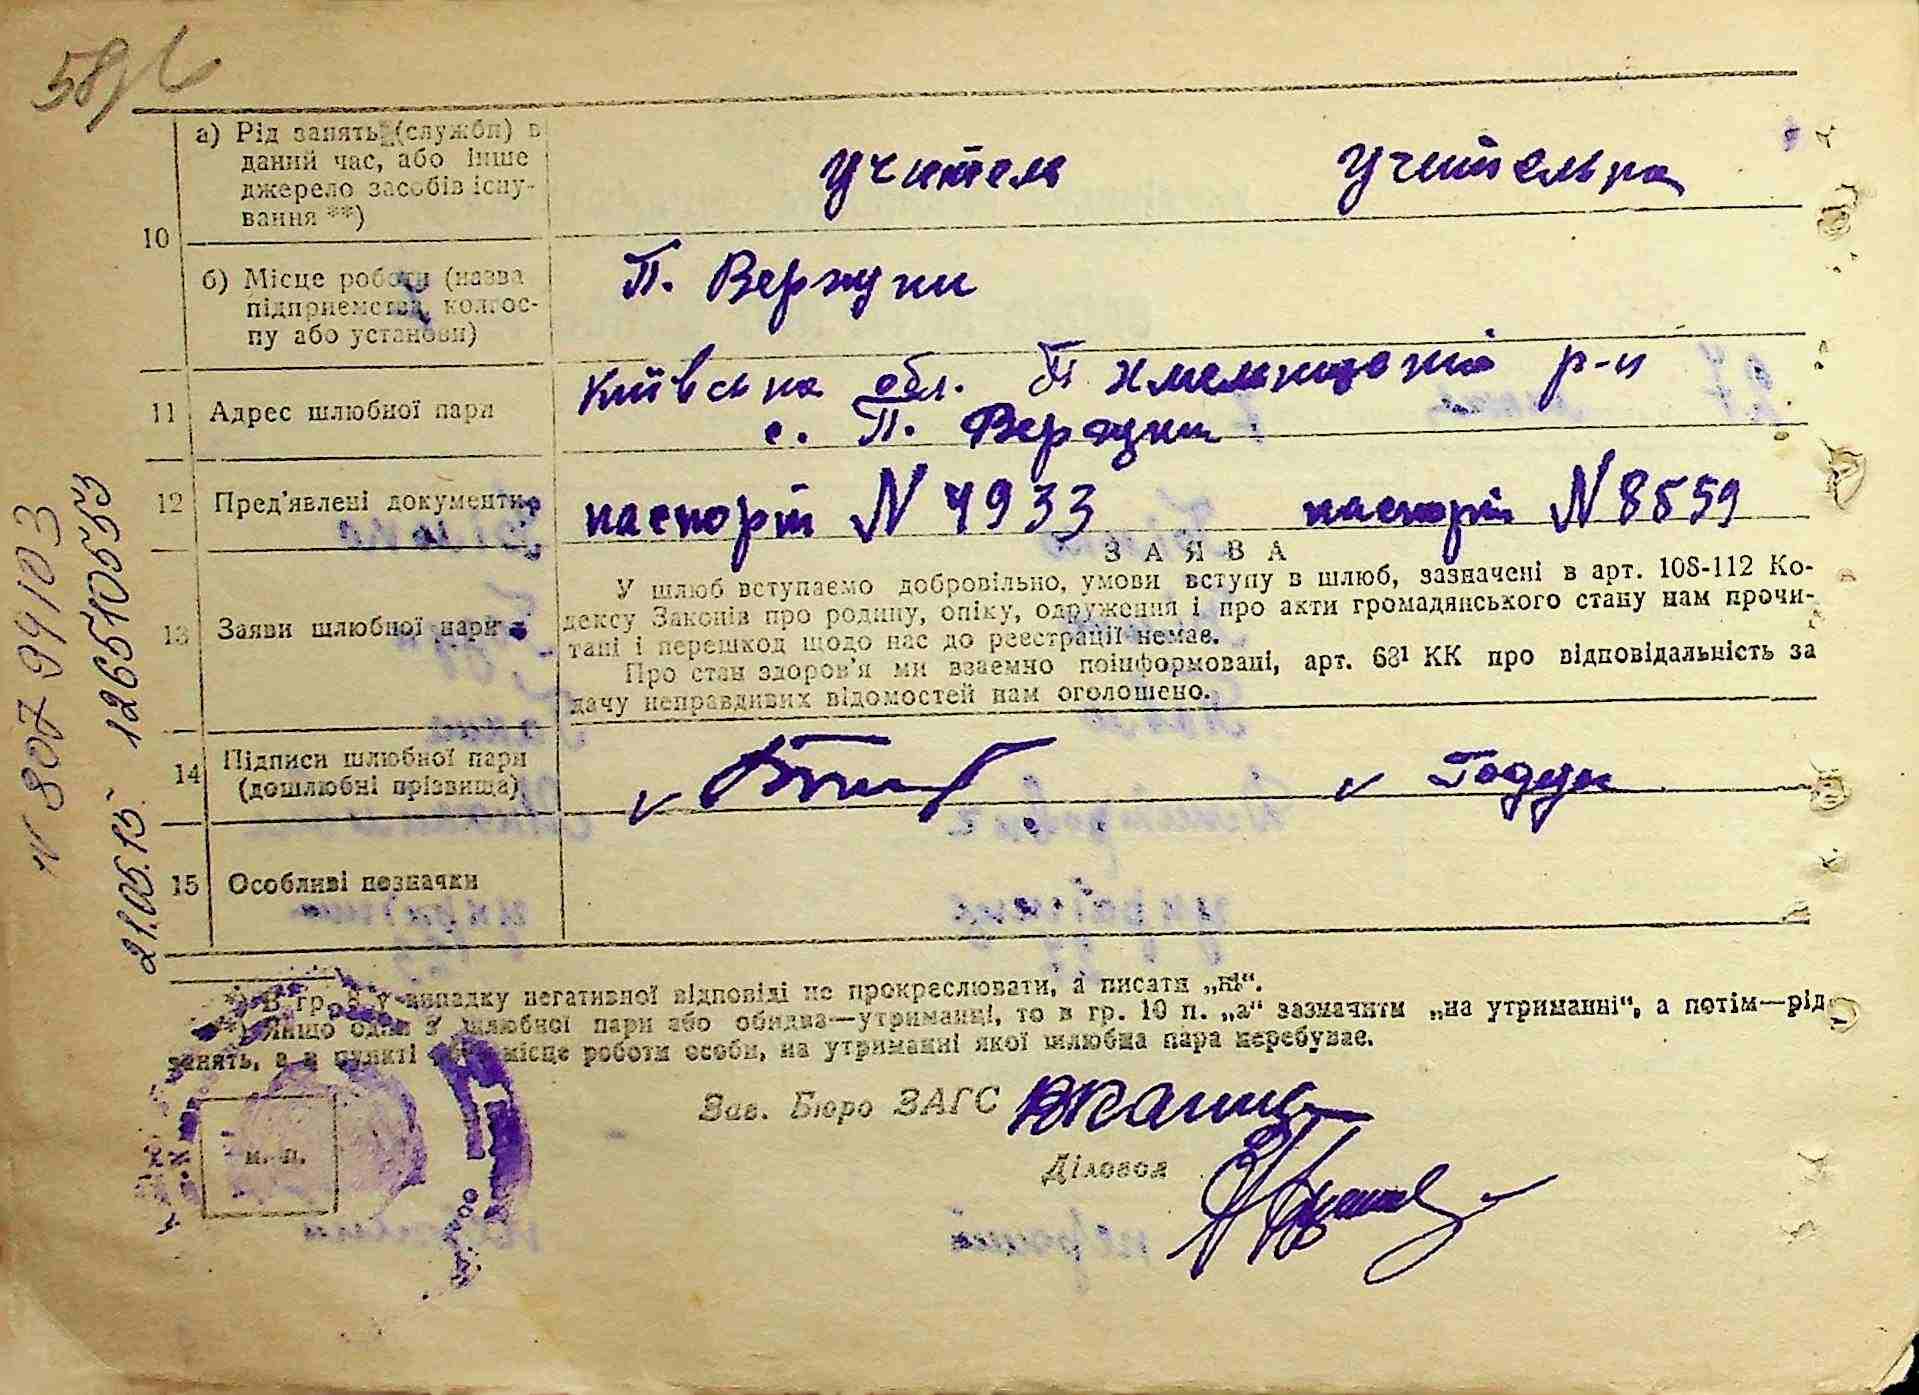 58
10
а) Рід занять (служби) в
даний час, або інше
джерело засобів існу-
вання **)
учитель
учителька
б) Місце роботи (назва
підприємства, колгос-
пу або установи)
П. Вергуни
11
Адрес шлюбної пари
Київська обл. П Хмельницький р-н
с. П. Вергуни
12
Пред'явлені документи
паспорт N 4933
паспорт N 8559
ЗАЯВА
13
Заяви шлюбної пари
У шлюб вступаємо добровільно, умови вступу в шлюб, зазначені в арт. 108-112 Ко-
дексу Законів про родину, опіку, одруження і про акти громадянського стану нам прочи-
тані і перешкод щодо нас до реєстрації немає.
Про стан здоров'я ми взаємно поінформовані, арт. 68¹ КК про відповідальність за
дачу неправдивих відомостей нам оголошено.
14
Підписи шлюбної пари
(дошлюбні прізвища)
v
v Годун
15
Особливі позначки
*) В гр. 8 у випадку негативної відповіді не прокреслювати, а писати „ні“.
**) Якщо один з шлюбної пари або обидва—утриманці, то в гр. 10 п. „а“ зазначити „на утриманні“, а потім—рід
занять, а в пункті місце роботи особи, на утриманні якої шлюбна пара перебуває.
Зав. Бюро ЗАГС
Діловод
м. п.
N 80794103
21.05.15 1265105553